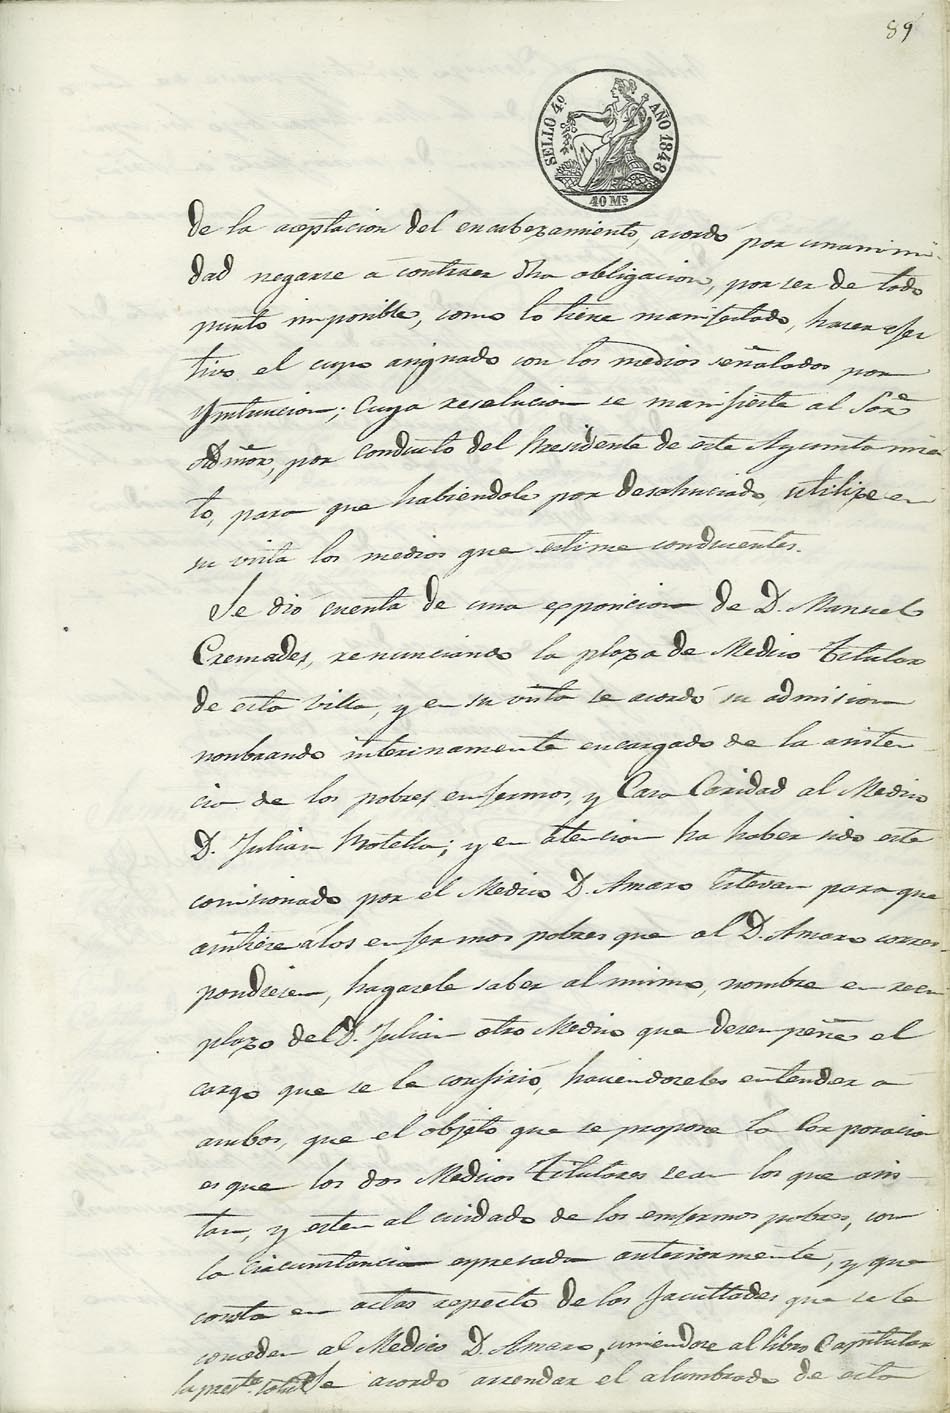 89
SELLO 4º AÑO 1848
40 Ms
de la aceptacion del encabezamiento, acordó por unanimi-
dad negarse a contraer dha obligacion, por ser de todo
punto imposible, como lo tiene manifestado, hacer efec
tivo el cupo asignado con los medios señalados por
Ynstruccion; cuya resolucion se manifieste al Sor
Admor, por conducto del Presidente de este Ayuntamien
to, para que habiendole por desahuciado, utilize en
su vista los medios que estime conducentes.
Se dió cuenta de una exposicion de D. Manuel
Cremades, renunciando la plaza de Medico Titular
de esta Villa, y en su vista se acordó su admision
nombrando interinamente encargado de la asisten
cia de los pobres enfermos, y Casa Caridad al Medico
D. Julian Motella; y en atencion ha haber sido este
comisionado por el Medico D. Amaro Estevan para que
asistiese a los enfermos pobres que al D. Amaro corres-
pondiesen, hagasele saber al mismo, nombre en reem
plazo del D. Julian otro Medico que desempeñe el
cargo que se le confirió, haciendoseles entender a
ambos, que el objeto que se propone la Corporacion
es que los dos Medicos Titulares sean los que asis
tan, y esten al cuidado de los enfermos pobres, con
la circunstancia espresada anteriormente, y que
consta en actas respecto de las facultades que se le
conceden al Medico D. Amaro, uniendose al libro Capitular
la preste. solud. Se acordó arrendar el alumbrado de esta